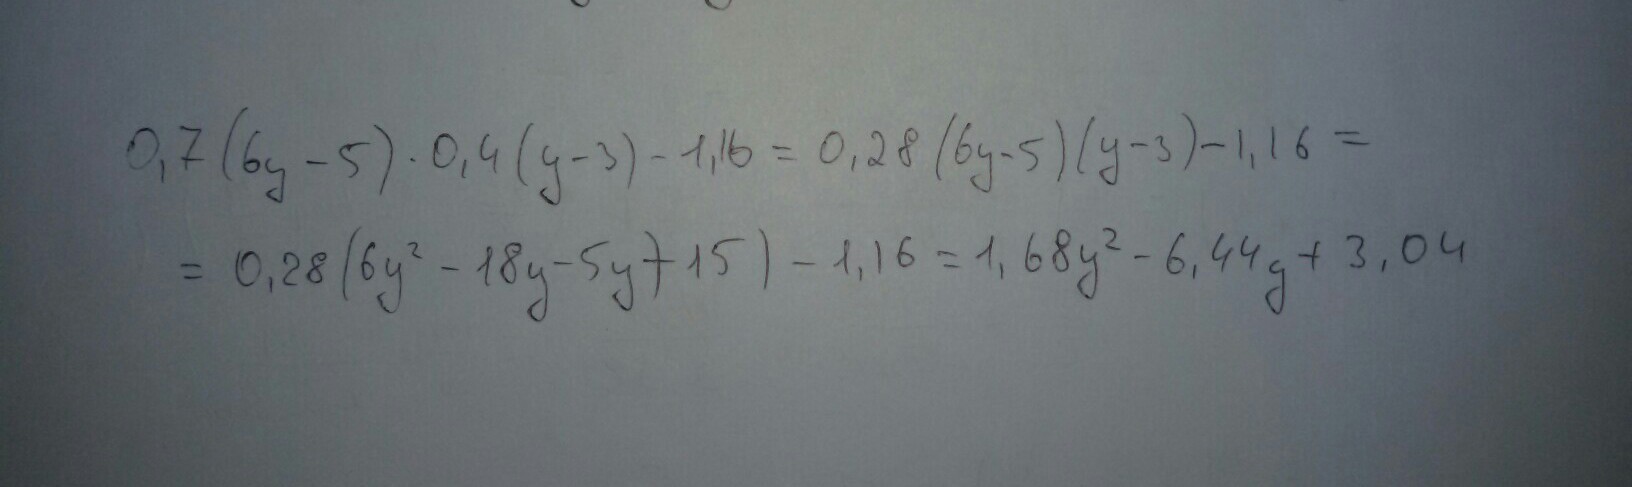 0,7(6y-5)·0,4(y-3)-1,16=0,28(6y-5)(y-3)-1,16=
=0,28(6y²-18y-5y+15)-1,16=1,68y²-6,44y+3,04